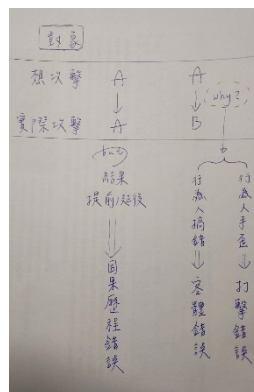 對象
想攻擊 A A
↓ ↓ why?
實際攻擊 A B
結果
提前/延後
⇓
因果歷程錯誤
行為人搞錯
↓
客體錯誤
行為人手歪
↓
打擊錯誤